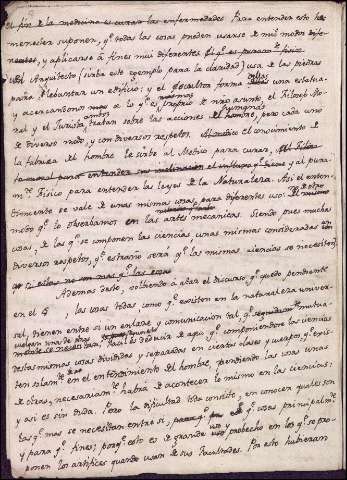 el fin de la medicina es curar las enfermedades Para entender esto he
menester suponer, q.e todas las cosas pueden usarse de mil modos difere
y aplicarse á fines mui diferentes
El Arquitecto (sirba este exemplo para la claridad) usa de las piedras
para lebantar un edificio; y el Escultor forma dellas una estatua.
y acercandonos mas a lo q.e es proprio de nro asunto, el Filosofo Mo
ral y el Jurista ambos tratan sobre las acciones humanas, pero cada uno
de diverso modo, y con diversos respetos. el conocimiento de
la fabrica del hombre le sirbe al Medico para curar,
y al pura
m.te Fisico para entender las leyes de la Naturaleza. Asi el enten
dimiento se vale de unas mismas cosas, para diferentes usos.
modo q.e lo observamos en las artes mecanicas. Siendo pues muchas
cosas, de las q.e se componen las ciencias, unas mismas consideradas con
diversos respetos, q.e estraño sera q.e las mismas ciencias se necesiten
Ademas deste, volbiendo à atar el discurso q.e quedò pendiente
en el § , las cosas todas como q.e existen en la naturaleza univer
sal, tienen entre si un enlaze y comunicacion tal, q.e
Facil es deducir de aqui q.e componiendose las ciencias
destas mismas cosas divididas y separadas en ciertas clases y cuerpos, q.e exis
ten solam.te en el entendimiento del hombre, pendiendo las cosas unas
de otras, necesariam.te habrà de acontecer lo mismo en las ciencias:
y asi es sin duda. Pero la dificultad esta consiste, en conocer quales son
las q.e mas se necesitan entre si, q.e cosas principalm.te
y para q.e fines; porq.e esto es de grande uso y probecho en los q.e se pro
ponen los artifices quando usan de sus facultades. Por esto hubieran